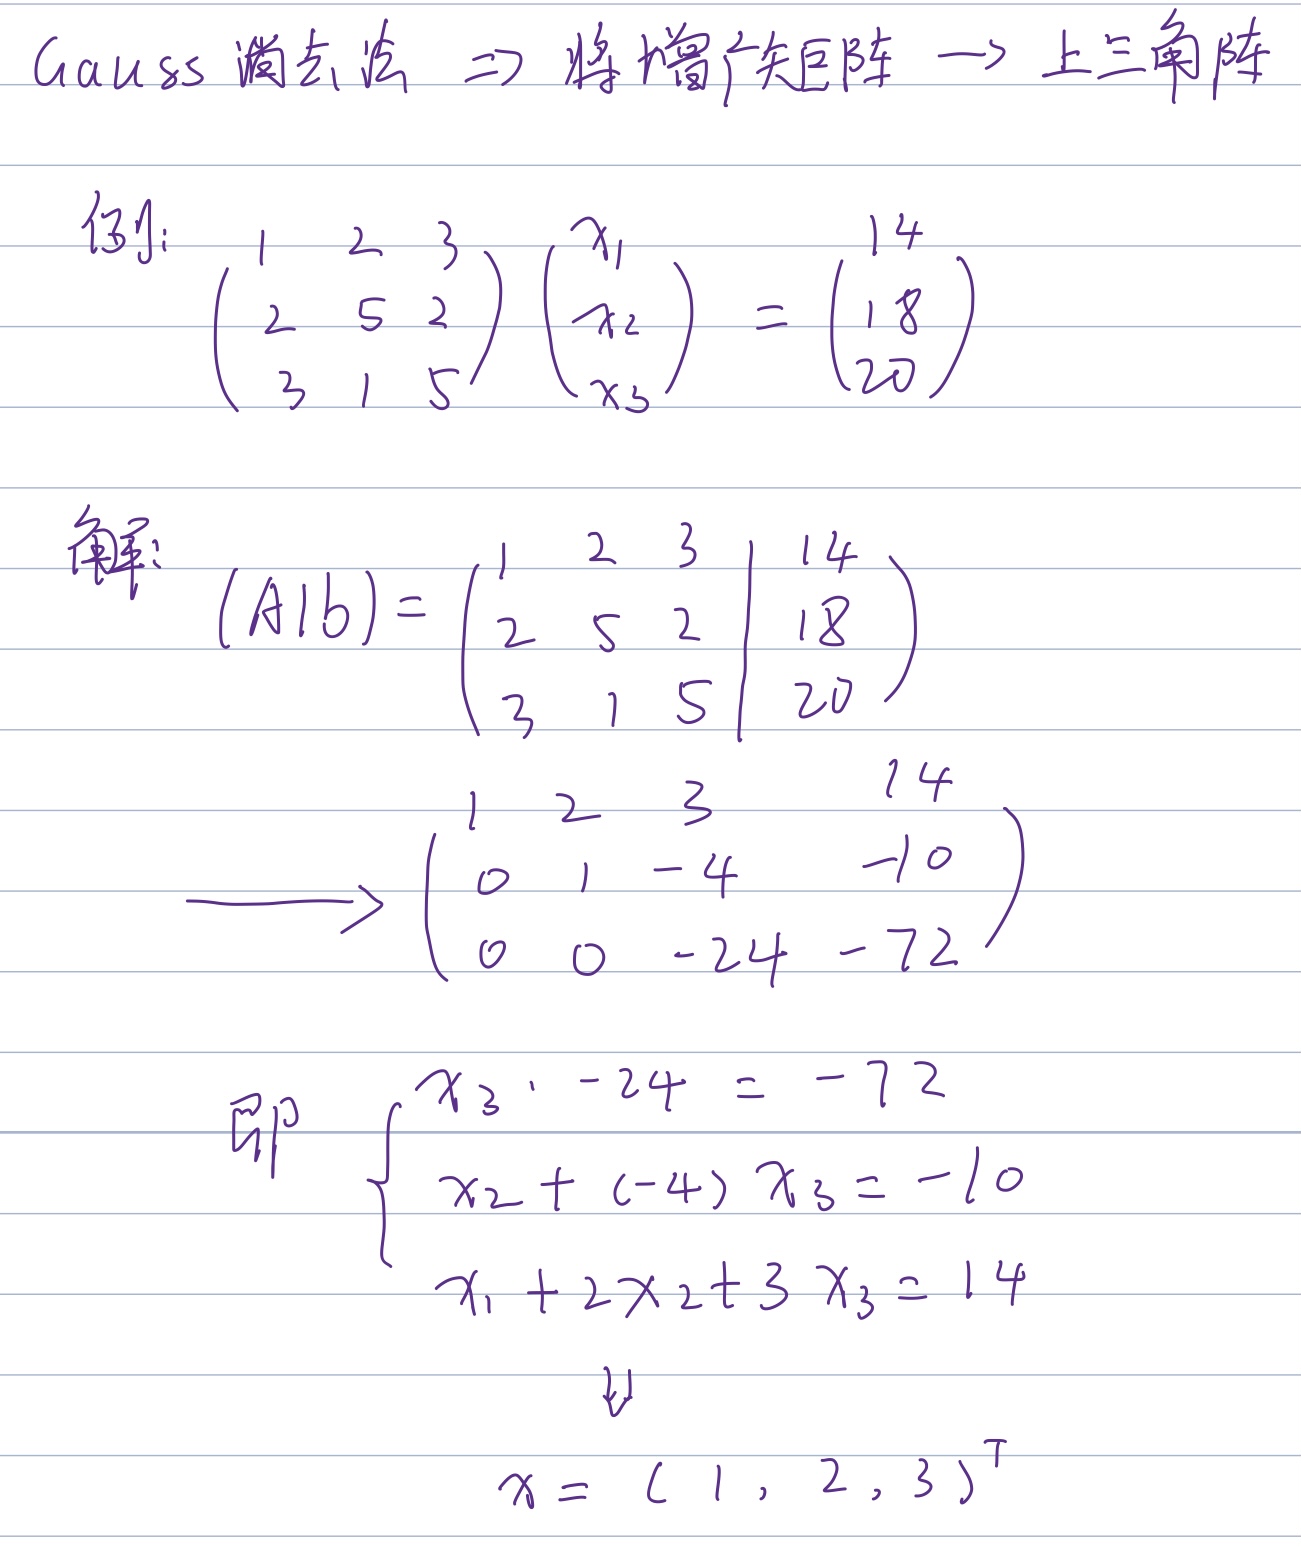 Gauss 消去法 ⇒ 将增广矩阵 → 上三角阵
例:
1 2 3 x₁ 14
( 2 5 2 ) ( x₂ ) = ( 18 )
3 1 5 x₃ 20
解:
1 2 3 | 14
(A|b) = ( 2 5 2 | 18 )
3 1 5 | 20
1 2 3 14
→ ( 0 1 -4 -10 )
0 0 -24 -72
即 { x₃ · -24 = -72
x₂ + (-4) x₃ = -10
x₁ + 2x₂ + 3x₃ = 14
⇓
x = (1, 2, 3)ᵀ